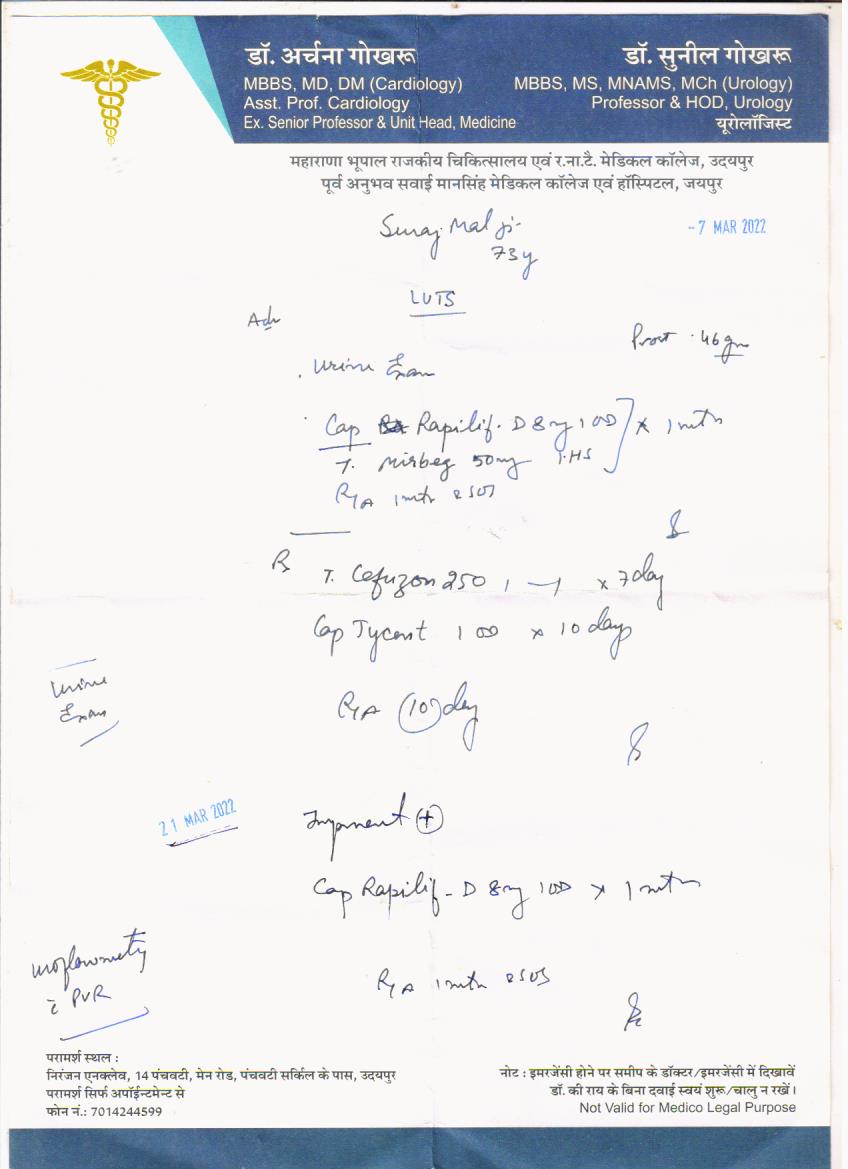 डॉ. अर्चना गोखरू
MBBS, MD, DM (Cardiology)
Asst. Prof. Cardiology
Ex. Senior Professor & Unit Head, Medicine
डॉ. सुनील गोखरू
MBBS, MS, MNAMS, MCh (Urology)
Professor & HOD, Urology
यूरोलॉजिस्ट
महाराणा भूपाल राजकीय चिकित्सालय एवं र.ना.टै. मेडिकल कॉलेज, उदयपुर
पूर्व अनुभव सवाई मानसिंह मेडिकल कॉलेज एवं हॉस्पिटल, जयपुर
Suraj Mal ji
-7 MAR 2022
73y
LUTS
Adv
Prost . 46 gm
Urine Exam
Cap Rapilif. D 8mg 1 OD
T. Mirbeg 50mg 1 HS
x 1 mth
R/A 1 mth & SOS
Rx
T. Cefuzon 250 1 — 1 x 7 day
Cap Tycent 1 OD x 10 days
Urine
Exam
R/A 10 day
21 MAR 2022
Improment (+)
Cap Rapilif - D 8mg 1 OD x 1 mth
Uroflowmetry
c̄ PVR
R/A 1 mth & SOS
परामर्श स्थल :
निरंजन एनक्लेव, 14 पंचवटी, मेन रोड, पंचवटी सर्किल के पास, उदयपुर
परामर्श सिर्फ अपॉईन्टमेन्ट से
फोन नं.: 7014244599
नोट : इमरजेंसी होने पर समीप के डॉक्टर/इमरजेंसी में दिखावें
डॉ. की राय के बिना दवाई स्वयं शुरू/चालु न रखें।
Not Valid for Medico Legal Purpose